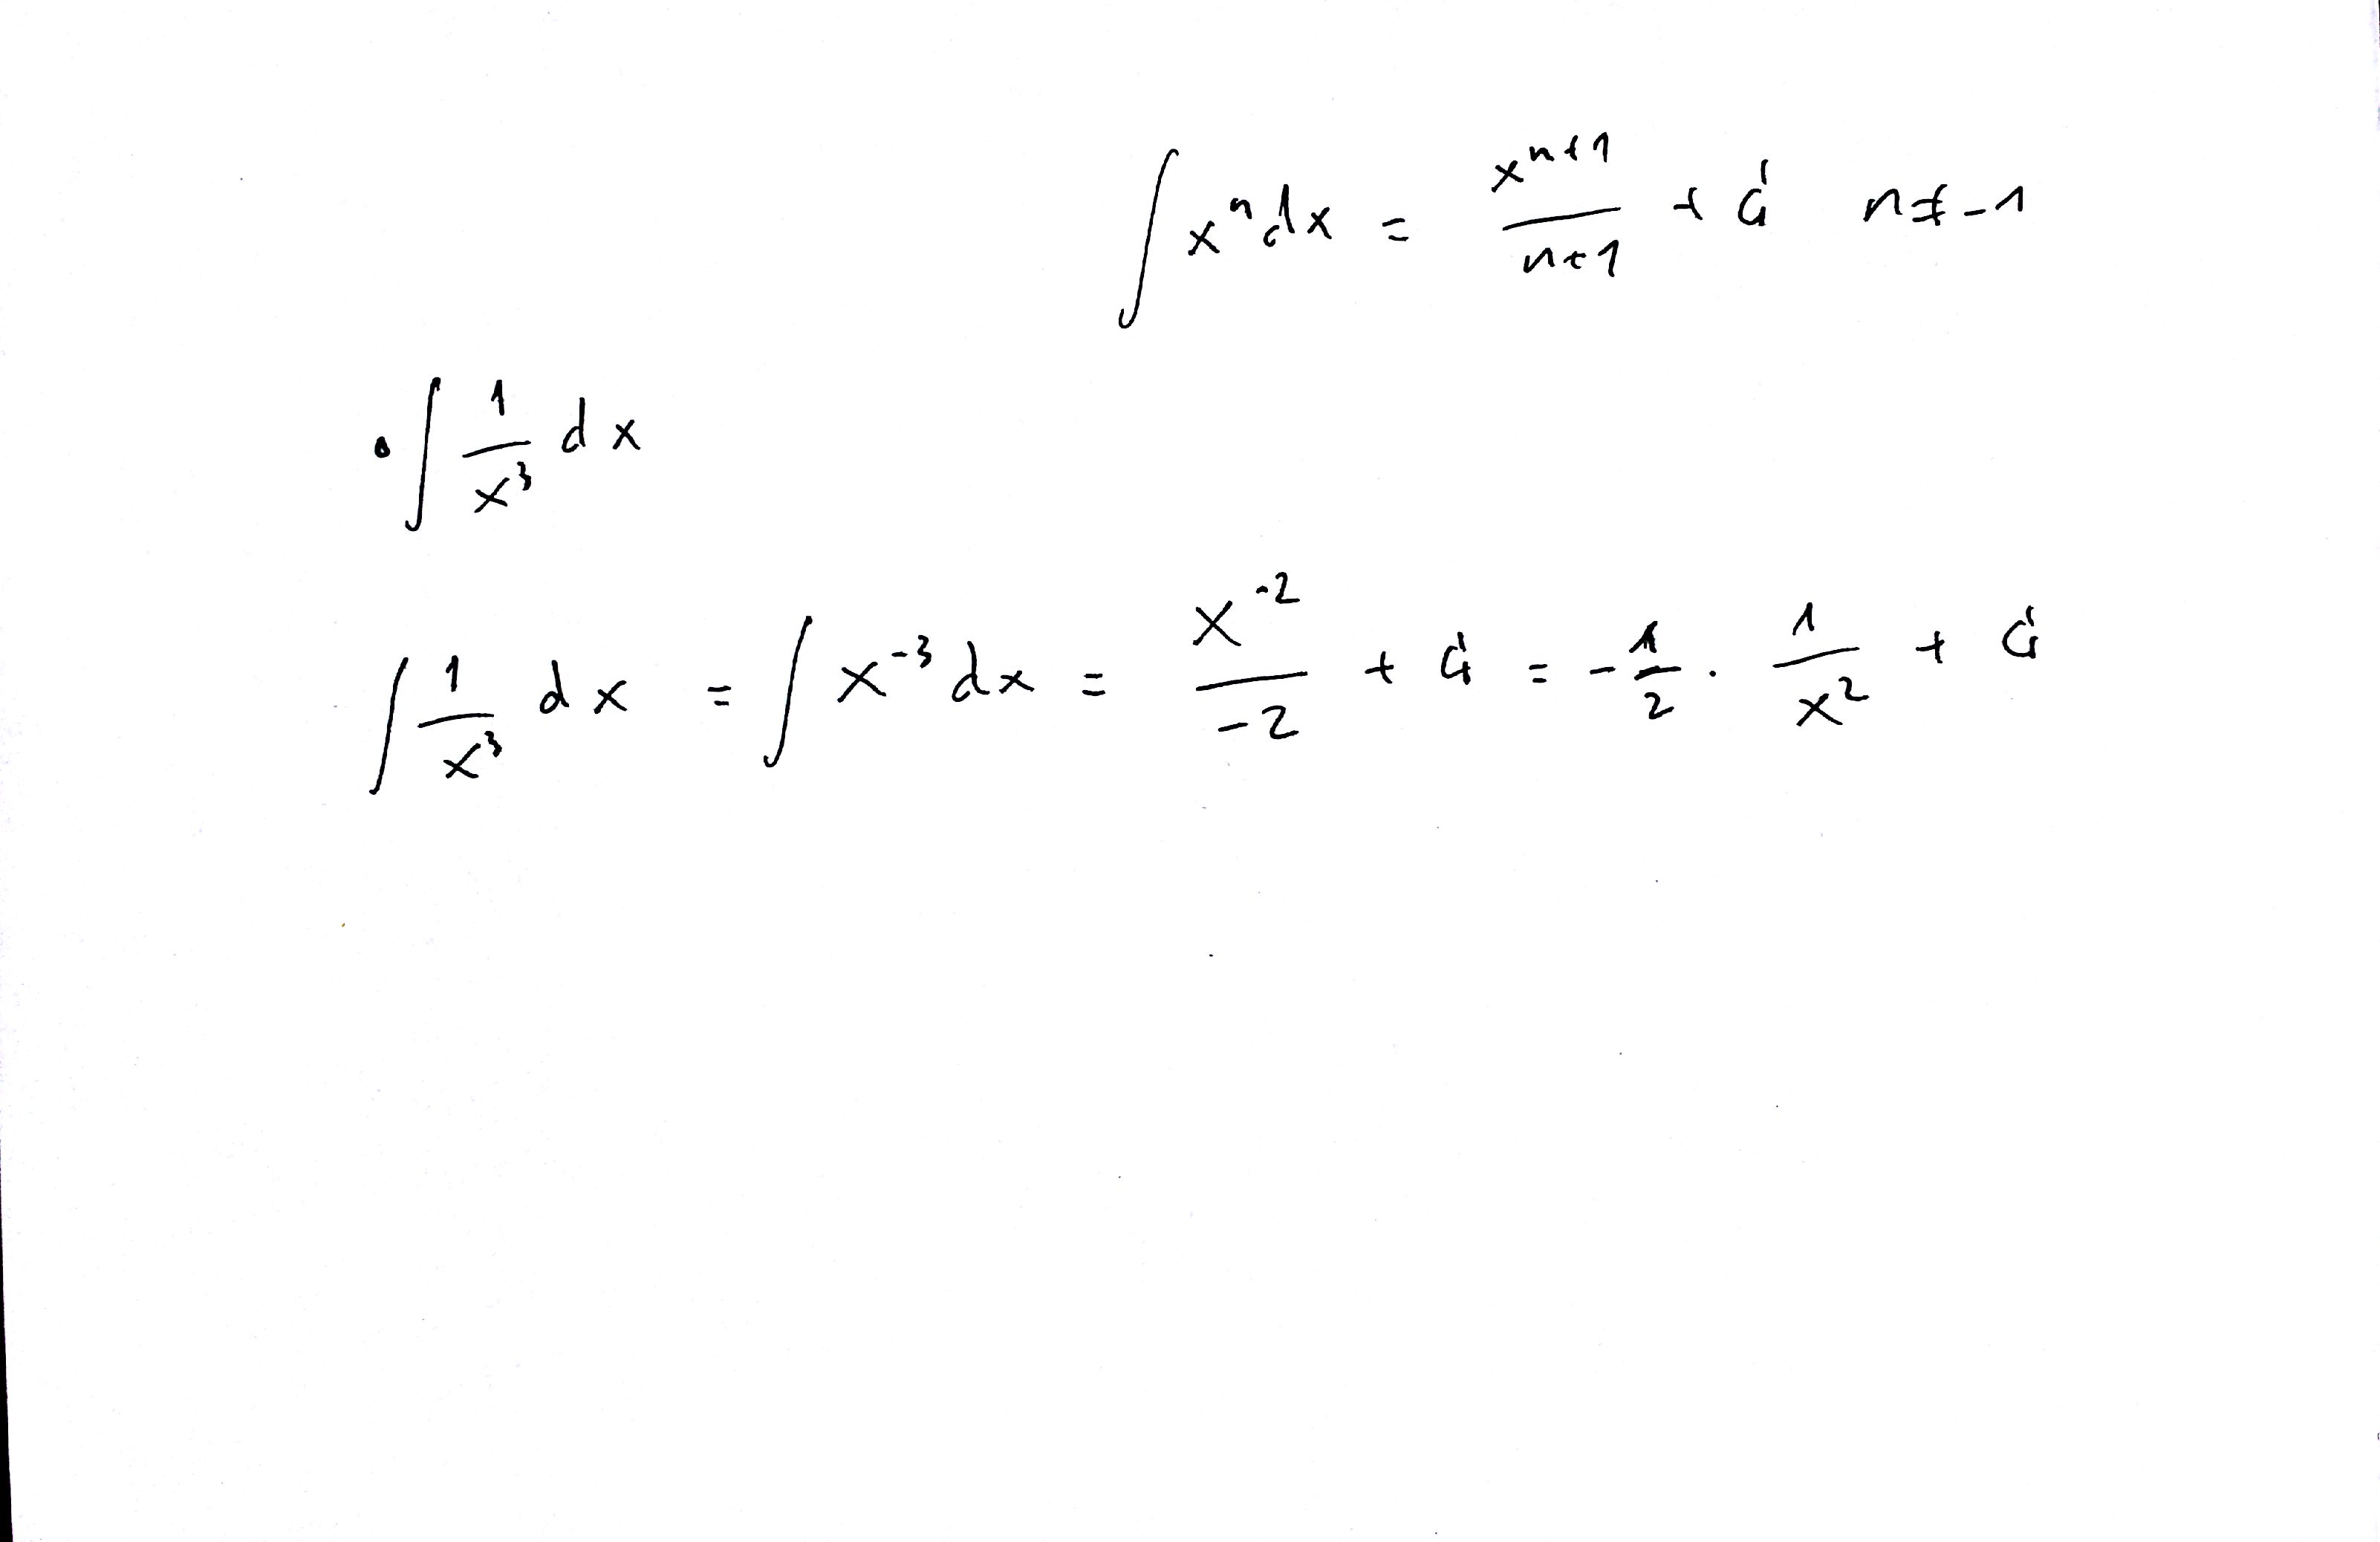 ∫ xⁿ dx = xⁿ⁺¹/(n+1) + C n ≠ -1
• ∫ 1/x³ dx
∫ 1/x³ dx = ∫ x⁻³ dx = x⁻²/-2 + C = -1/2 · 1/x² + C